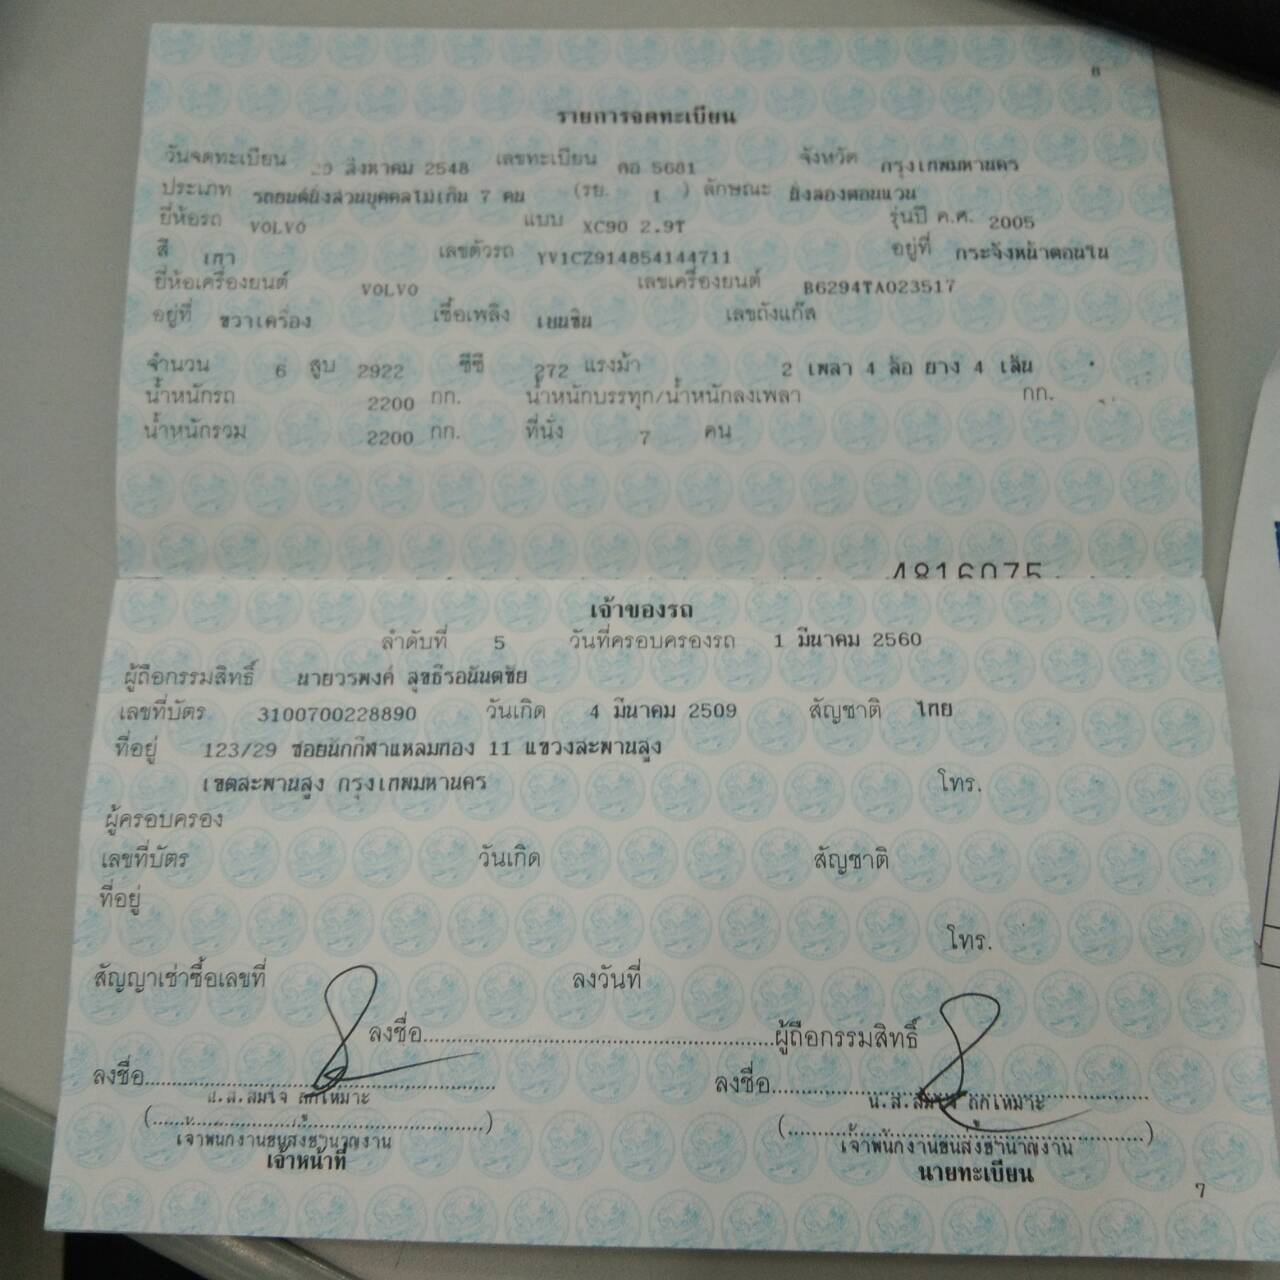 รายการจดทะเบียน
วันจดทะเบียน สิงหาคม 2548 เลขทะเบียน 5681 จังหวัด กรุงเทพมหานคร
ประเภท รถยนต์นั่งส่วนบุคคลไม่เกิน 7 คน (รย. 1 ) ลักษณะ นั่งสองตอนแวน
ยี่ห้อรถ VOLVO แบบ XC90 2.9T รุ่นปี ค.ศ. 2005
สี เทา เลขตัวรถ YV1CZ914854144711 อยู่ที่ กระจังหน้าตอนใน
ยี่ห้อเครื่องยนต์ VOLVO เลขเครื่องยนต์ B6294TA023517
อยู่ที่ ขวาเครื่อง เชื้อเพลิง เบนซิน เลขถังแก๊ส
จำนวน 6 สูบ 2922 ซีซี 272 แรงม้า 2 เพลา 4 ล้อ ยาง 4 เส้น
น้ำหนักรถ 2200 กก. น้ำหนักบรรทุก/น้ำหนักลงเพลา กก.
น้ำหนักรวม 2200 กก. ที่นั่ง 7 คน
4816075
เจ้าของรถ
ลำดับที่ 5 วันที่ครอบครองรถ 1 มีนาคม 2560
ผู้ถือกรรมสิทธิ์ นายวรพงศ์ สุขธีรอนันตชัย
เลขที่บัตร 3100700228890 วันเกิด 4 มีนาคม 2509 สัญชาติ ไทย
ที่อยู่ 123/29 ซอยนักกีฬาแหลมทอง 11 แขวงสะพานสูง
เขตสะพานสูง กรุงเทพมหานคร โทร.
ผู้ครอบครอง
เลขที่บัตร วันเกิด สัญชาติ
ที่อยู่
โทร.
สัญญาเช่าซื้อเลขที่ ลงวันที่
ลงชื่อ ผู้ถือกรรมสิทธิ์
ลงชื่อ ลงชื่อ
น.ส.สมใจ น.ส.สมใจ
เจ้าพนักงานขนส่งชำนาญงาน เจ้าพนักงานขนส่งชำนาญงาน
เจ้าหน้าที่ นายทะเบียน
7